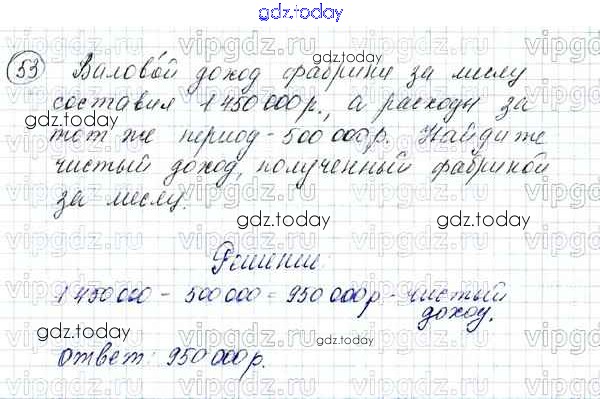 gdz.today
53 Валовой доход фабрики за месяц
составил 1 450 000 р., а расходы за
gdz.today
тот же период - 500 000 р. Найдите
чистый доход, полученный фабрикой
за месяц.
gdz.today gdz.today
Решение:
1 450 000 - 500 000 = 950 000 р - чистый
доход.
gdz.today gdz.today
Ответ: 950 000 р.
gdz.today